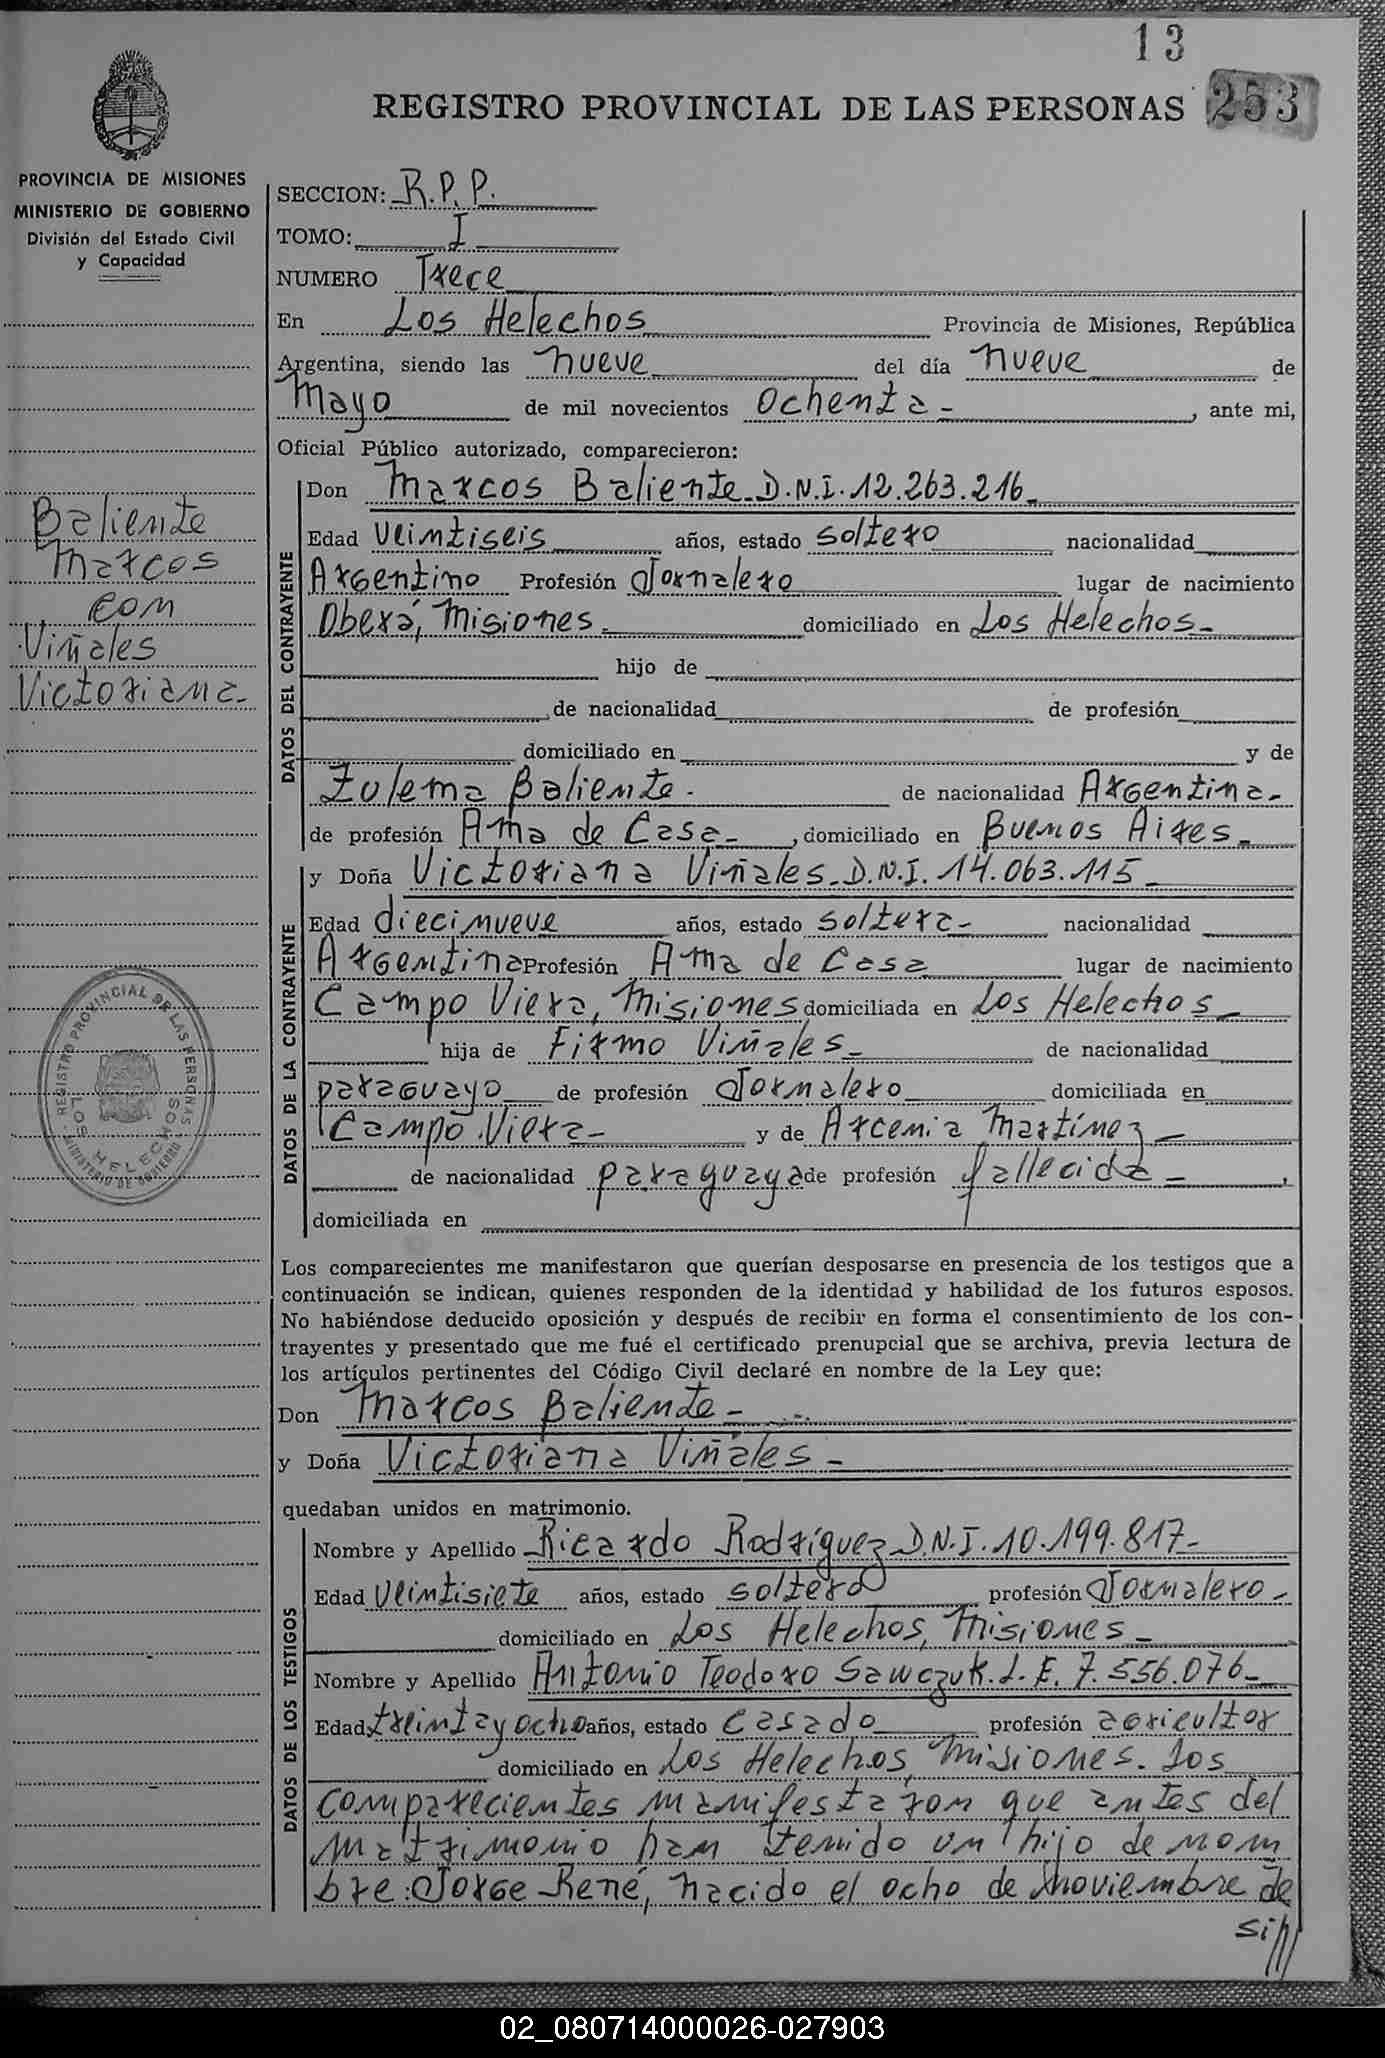 13
REGISTRO PROVINCIAL DE LAS PERSONAS 253
PROVINCIA DE MISIONES
MINISTERIO DE GOBIERNO
División del Estado Civil
y Capacidad
SECCION: R.P.P.
TOMO: I
NUMERO Trece
En Los Helechos Provincia de Misiones, República
Argentina, siendo las nueve del día nueve de
Mayo de mil novecientos Ochenta - , ante mi,
Oficial Público autorizado, comparecieron:
Baliente
Marcos
con
Viñales
Victoriana.-
DATOS DEL CONTRAYENTE
Don Marcos Baliente. D.N.I. 12.263.216-
Edad Veintiseis años, estado soltero nacionalidad
Argentino Profesión Jornalero lugar de nacimiento
Oberá, Misiones.- domiciliado en Los Helechos.-
hijo de
, de nacionalidad de profesión
domiciliado en y de
Zulema Baliente. de nacionalidad Argentina.-
de profesión Ama de Casa- , domiciliado en Buenos Aires.-
DATOS DE LA CONTRAYENTE
y Doña Victoriana Viñales. D.N.I. 14.063.115-
Edad diecinueve años, estado soltera- nacionalidad
Argentina Profesión Ama de Casa lugar de nacimiento
Campo Viera, Misiones domiciliada en Los Helechos-
hija de Firmo Viñales- de nacionalidad
paraguayo de profesión Jornalero domiciliada en
Campo Viera- y de Arcenia Martínez-
de nacionalidad paraguaya de profesión fallecida - ,
domiciliada en
REGISTRO PROVINCIAL DE LAS PERSONAS
LOS HELECHOS
MINISTERIO DE GOBIERNO
Los comparecientes me manifestaron que querían desposarse en presencia de los testigos que a
continuación se indican, quienes responden de la identidad y habilidad de los futuros esposos.
No habiéndose deducido oposición y después de recibir en forma el consentimiento de los con-
trayentes y presentado que me fué el certificado prenupcial que se archiva, previa lectura de
los artículos pertinentes del Código Civil declaré en nombre de la Ley que:
Don Marcos Baliente-
y Doña Victoriana Viñales -
quedaban unidos en matrimonio.
DATOS DE LOS TESTIGOS
Nombre y Apellido Ricardo Rodríguez D.N.I. 10.199.817-
Edad Veintisiete años, estado soltero profesión Jornalero-
domiciliado en Los Helechos, Misiones-
Nombre y Apellido Antonio Teodoro Sawczuk. L.E. 7.556.076-
Edad treinta y ocho años, estado Casado profesión agricultor
domiciliado en Los Helechos, Misiones. Los
comparecientes manifestaron que antes del
matrimonio han tenido un hijo de nom
bre: Jorge René, nacido el ocho de noviembre de
si///
02_080714000026-027903